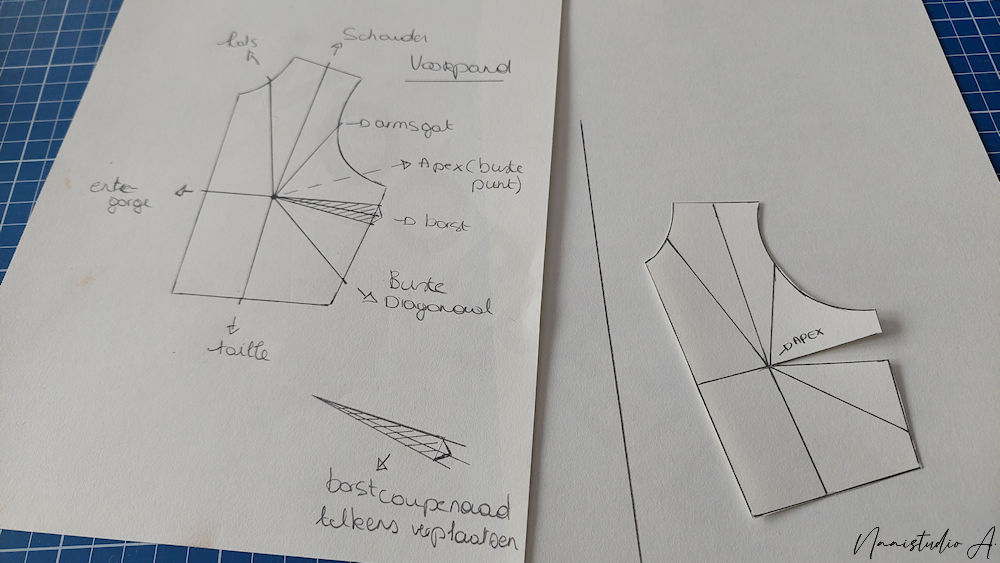 hals
Schouder
Voorpand
armsgat
Apex (buste
punt)
entre-
gorge
borst
Buste
Diagonaal
taille
borstcoupenaad
telkens verplaatsen
APEX
Naaistudio A.